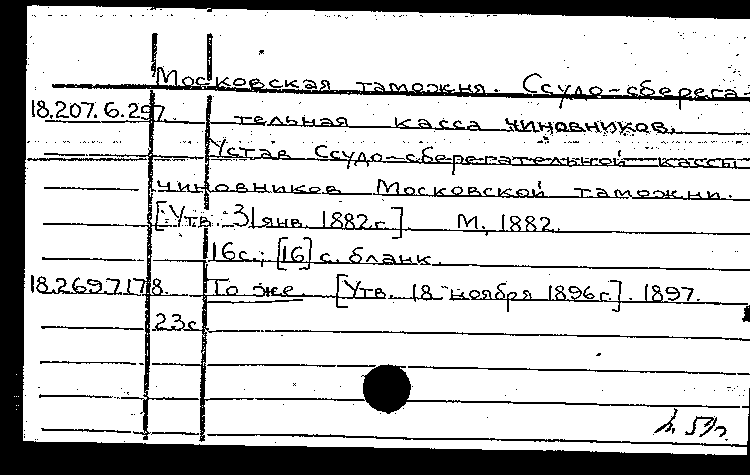 Московская таможня. Ссудо-сберега-
18.207.6.297 тельная касса чиновников.
Устав Ссудо-сберегательной кассы
чиновников Московской таможни.
[Утв. 31 янв. 1882 г.]. М., 1882.
16 с.; [16] с. бланк.
18.269.7.178. То же. [Утв. 18 ноября 1896 г.]. 1897.
23 с